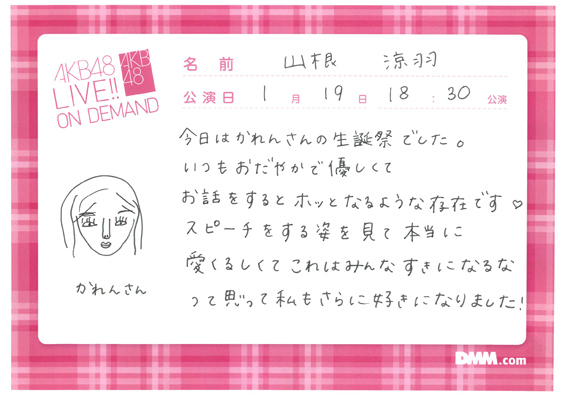 AKB48
LIVE!!
ON DEMAND
AKB
48
名前 山根 涼羽
公演日 1月19日 18:30 公演
今日はかれんさんの生誕祭でした。
いつもおだやかで優しくて
お話をするとホッとなるような存在です♡
スピーチをする姿を見て本当に
愛くるしくてこれはみんなすきになるな
って思って私もさらに好きになりました!
かれんさん
DMM.com